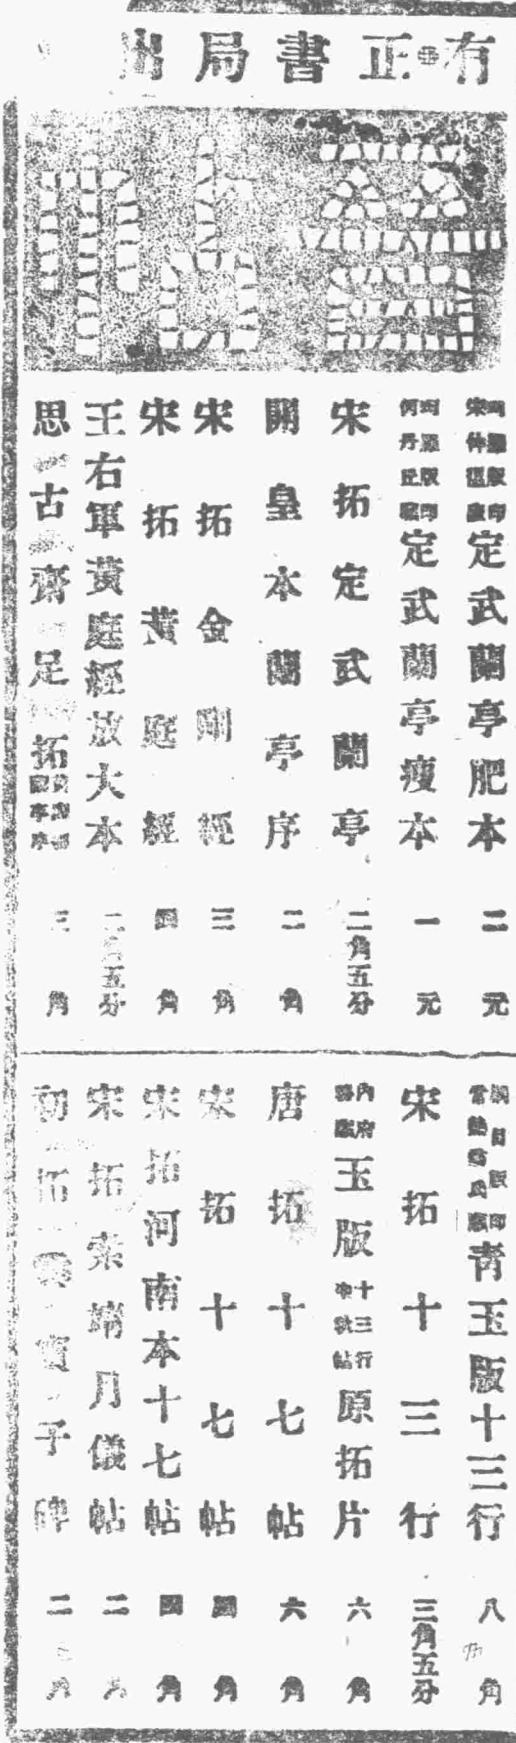 有正書局出
珂羅版印宋仲溫藏定武蘭亭肥本 二元
珂羅版印何丹丘藏定武蘭亭瘦本 一元
宋拓定武蘭亭 二角五分
開皇本蘭亭序 二角
宋拓金剛經 三角
宋拓黃庭經 四角
王右軍黃庭經放大本 二角五分
思古齋足拓 三角
青玉版十三行 八角
宋拓十三行 三角五分
內府藏玉版十三行原拓片 六角
唐拓十七帖 六角
宋拓十七帖 四角
宋拓河南本十七帖 四角
宋拓索靖月儀帖 二角
初拓爨寶子碑 二角